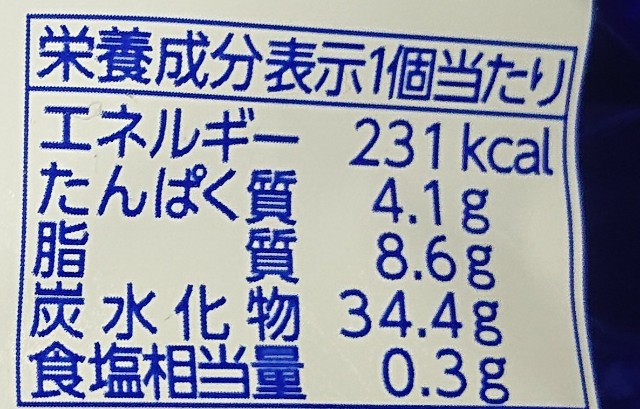 栄養成分表示1個当たり
エネルギー 231kcal
たんぱく質 4.1g
脂質 8.6g
炭水化物 34.4g
食塩相当量 0.3g